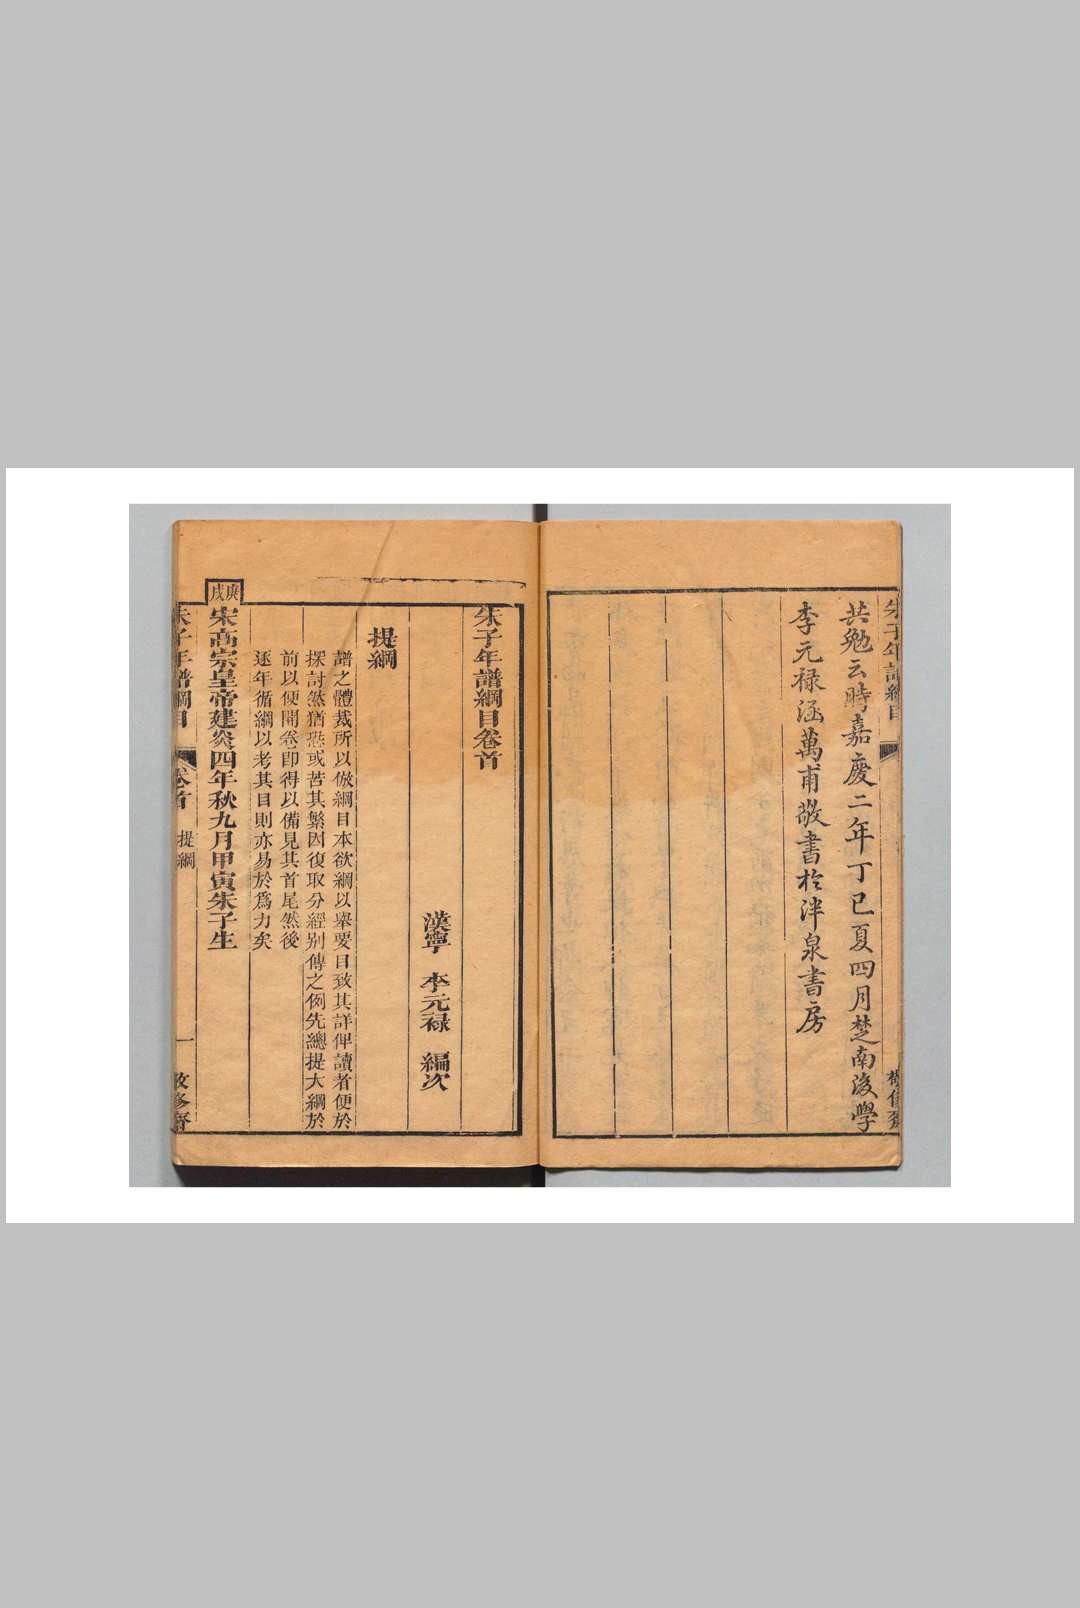 朱子年譜綱目
共勉云時嘉慶二年丁巳夏四月楚南後學
李元禄涵萬甫敬書於泮泉書房
朱子年譜綱目卷首
漢寧 李元禄 編次
提綱
譜之體裁所以倣綱目本欲綱以舉要目致其詳俾讀者便於
探討然猶恐或苦其繁因復取分經别傳之例先總提大綱於
前以便開卷即得以備見其首尾然後
逐年循綱以考其目則亦易於爲力矣
庚戌
宋高宗皇帝建炎四年秋九月甲寅朱子生
朱子年譜綱目 卷首 提綱 一